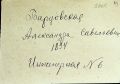 Бардовская
Александра Савельевна
1894
Инженерная № 6